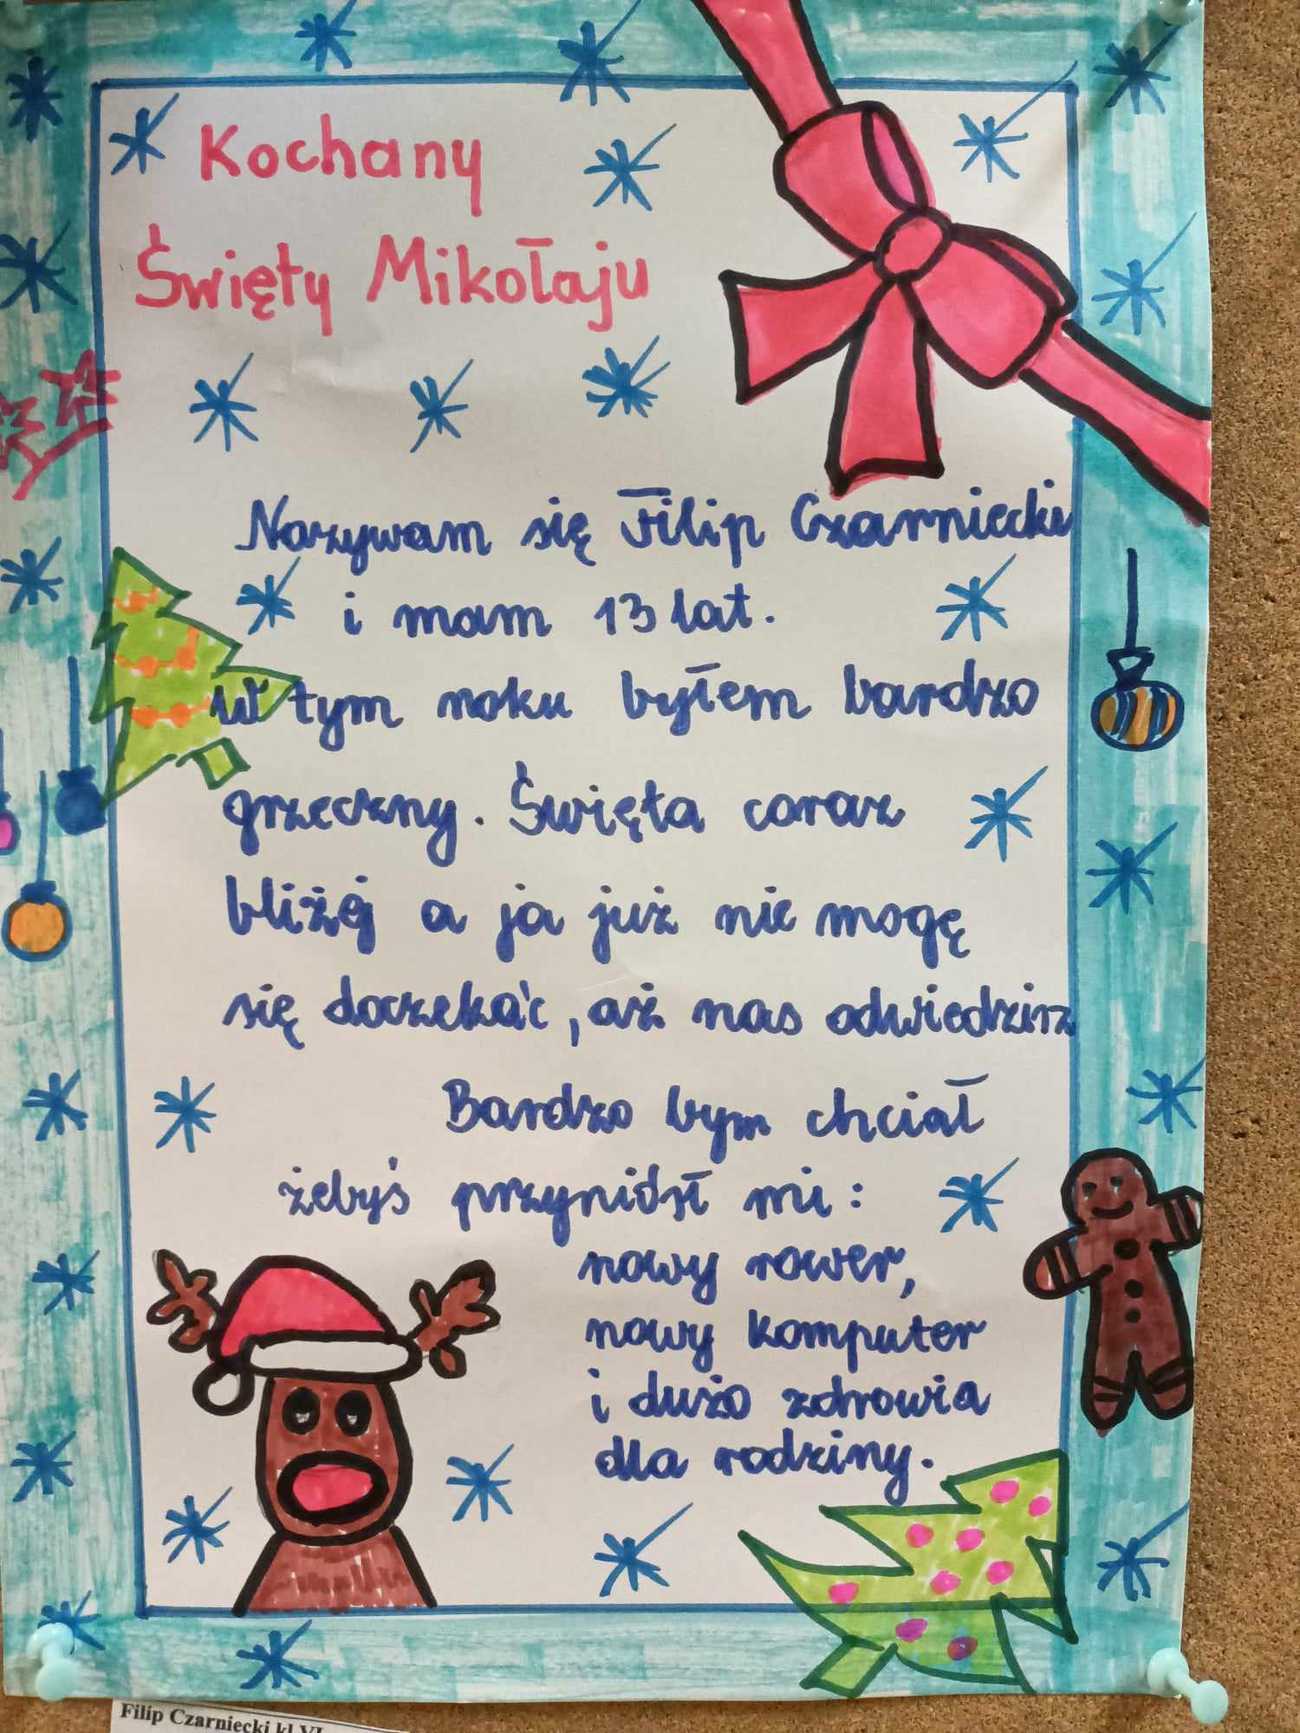 Kochany
Święty Mikołaju
Nazywam się Filip Czarniecki
i mam 13 lat.
W tym roku byłem bardzo
grzeczny. Święta coraz
bliżej a ja już nie mogę
się doczekać, aż nas odwiedzisz
Bardzo bym chciał
żebyś przyniósł mi:
nowy rower,
nowy komputer
i dużo zdrowia
dla rodziny.
Filip Czarniecki kl VI